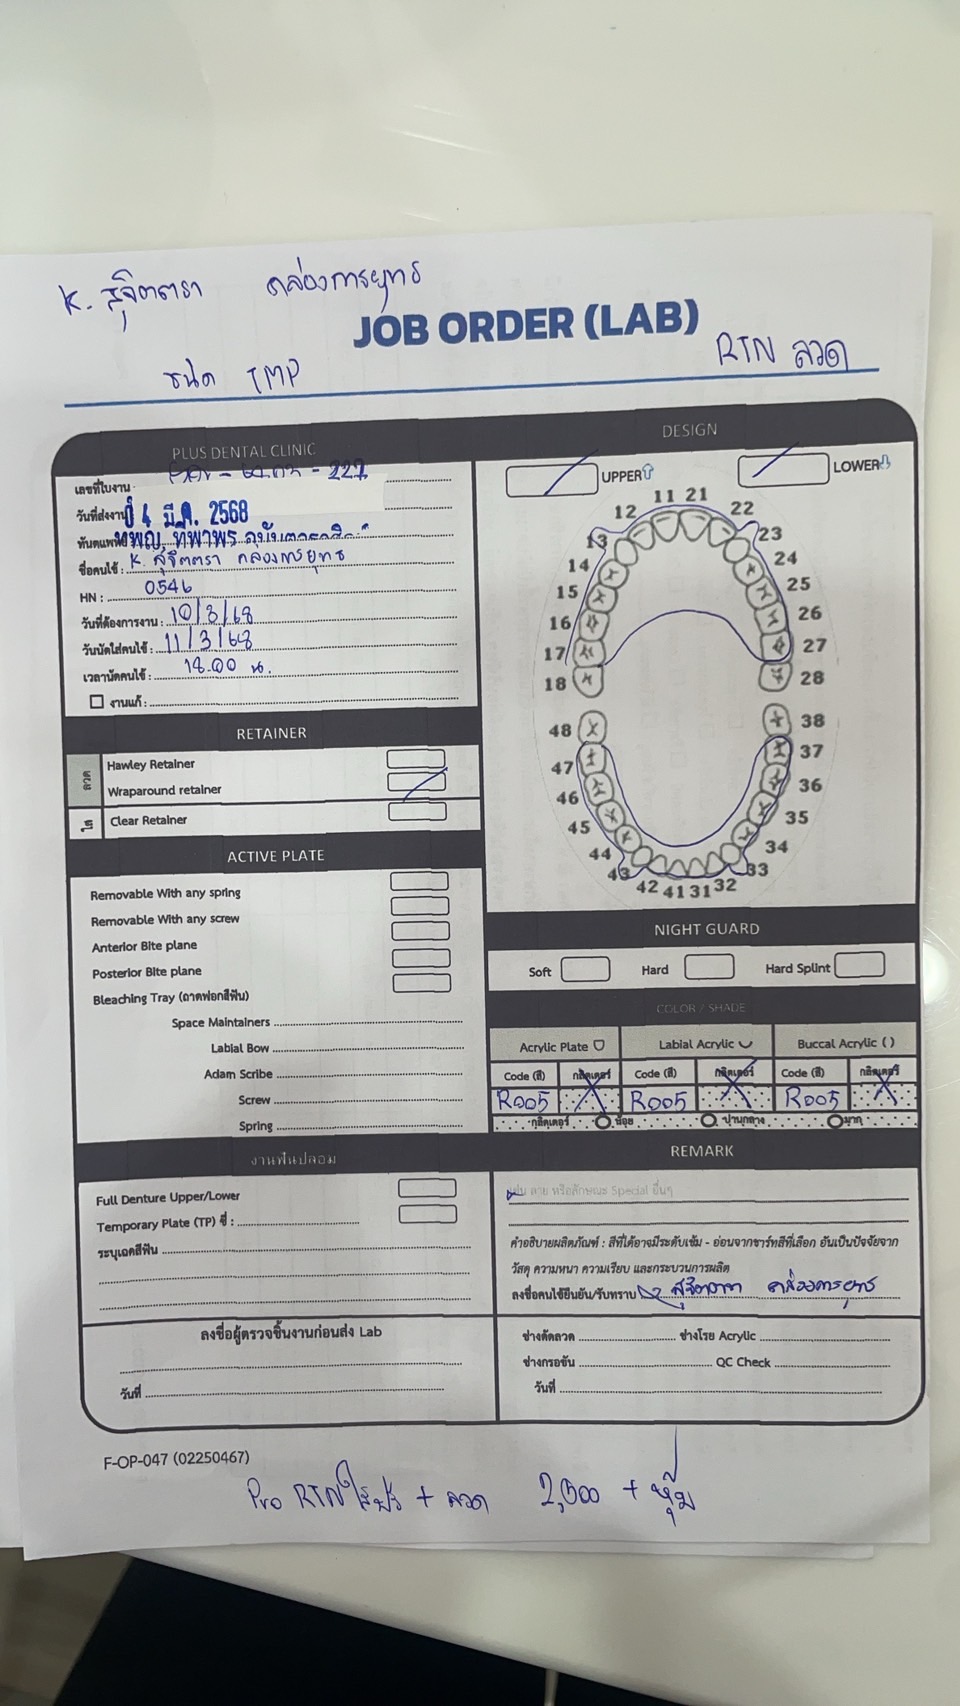 K. สุจิตตรา คล่องการยุทธ
JOB ORDER (LAB)
ชนิด TMP
RTN ลวด
PLUS DENTAL CLINIC
เลขที่ใบงาน : - 227
วันที่ส่งงาน 4 มี.ค. 2568
ทันตแพทย์ ทพญ. ทิพาพร
ชื่อคนไข้ : K. สุจิตตรา คล่องการยุทธ
HN : 0546
วันที่ต้องการงาน : 10/3/68
วันนัดใส่คนไข้ : 11/3/68
เวลานัดคนไข้ : 18.00 น.
งานแก้ :
RETAINER
ลวด
Hawley Retainer
Wraparound retainer
ใส
Clear Retainer
ACTIVE PLATE
Removable With any spring
Removable With any screw
Anterior Bite plane
Posterior Bite plane
Bleaching Tray (ถาดฟอกสีฟัน)
Space Maintainers
Labial Bow
Adam Scribe
Screw
Spring
งานฟันปลอม
Full Denture Upper/Lower
Temporary Plate (TP) ซี่ :
ระบุเฉดสีฟัน
ลงชื่อผู้ตรวจชิ้นงานก่อนส่ง Lab
วันที่
DESIGN
UPPER
LOWER
11 21
12 22
13 23
14 24
15 25
16 26
17 27
18 28
48 38
47 37
46 36
45 35
44 34
43 33
42 41 31 32
NIGHT GUARD
Soft Hard Hard Splint
COLOR / SHADE
Acrylic Plate Labial Acrylic Buccal Acrylic ( )
Code (สี) กลิตเตอร์ Code (สี) กลิตเตอร์ Code (สี) กลิตเตอร์
R005 R005 R005
กลิตเตอร์ น้อย ปานกลาง มาก
REMARK
เช่น ลาย หรือลักษณะ Special อื่นๆ
คำอธิบายผลิตภัณฑ์ : สีที่ได้อาจมีระดับเข้ม - อ่อนจากชาร์ทสีที่เลือก อันเป็นปัจจัยจาก
วัสดุ ความหนา ความเรียบ และกระบวนการผลิต
ลงชื่อคนไข้ยืนยัน/รับทราบ สุจิตตรา คล่องการยุทธ
ช่างดัดลวด ช่างโรย Acrylic
ช่างกรอขัน QC Check
วันที่
F-OP-047 (02250467)
Pro RTN ใสฟรี + ลวด 2,500 + หุ้ม